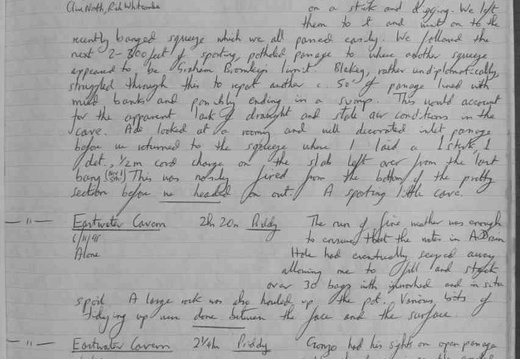 Clive North, Rich Whitcombe on a stick and digging. We left
them to it and went on to the
recently banged squeeze which we all passed easily. We followed the
next 2-300 feet of sporting, potholed passage to where another squeeze
appeared to be Graham Bromley's limit. Blakey, rather undiplomatically,
struggled through this to report another c. 50' of passage lined with
mud banks and possibly ending in a sump. This would account
for the apparent lack of draught and stale air conditions in the
cave. Ade looked at a roomy and well decorated inlet passage
before we returned to the squeeze where I laid a 1 stick, 1
det., 1/2m cord charge on the slab left over from the last
bang This was noisily fired from the bottom of the pretty
section before we headed on out. A sporting little cave.
— 11 — Eastwater Cavern 2h 20m Priddy The run of fine weather was enough
6/11/95 to ensure that the water in A Drain
Alone Hole had eventually seeped away
allowing me to fill and stack
over 30 bags with quarried and in situ
spoil. A large rock was also hauled up the pot. Various bits of
tidying up were done between the face and the surface.
— 11 — Eastwater Cavern 2 1/4h Priddy Gonzo had his sights on open passage